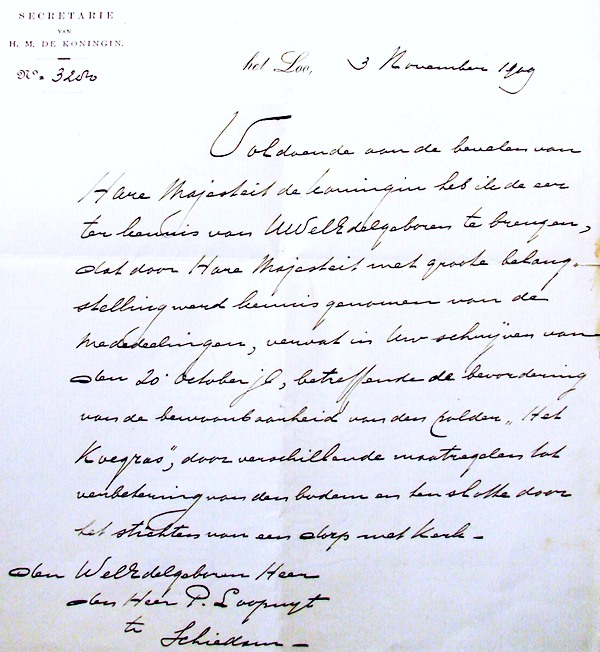 SECRETARIE
VAN
H. M. DE KONINGIN.
No. 3200
het Loo, 3 November 1909
Voldoende aan de bevelen van
Hare Majesteit de Koningin heb ik de eer
ter kennis van UWelEdelgeboren te brengen,
dat door Hare Majesteit met groote belang-
stelling werd kennis genomen van de
mededeelingen, vervat in Uw schrijven van
den 20 October jl, betreffende de bevordering
van de bewoonbaarheid van den polder „Het
Koegras", door verschillende maatregelen tot
verbetering van den bodem en ten slotte door
het stichten van een dorp met kerk —
den WelEdelgeboren Heer
den Heer P. Loopuyt
te Schiedam —